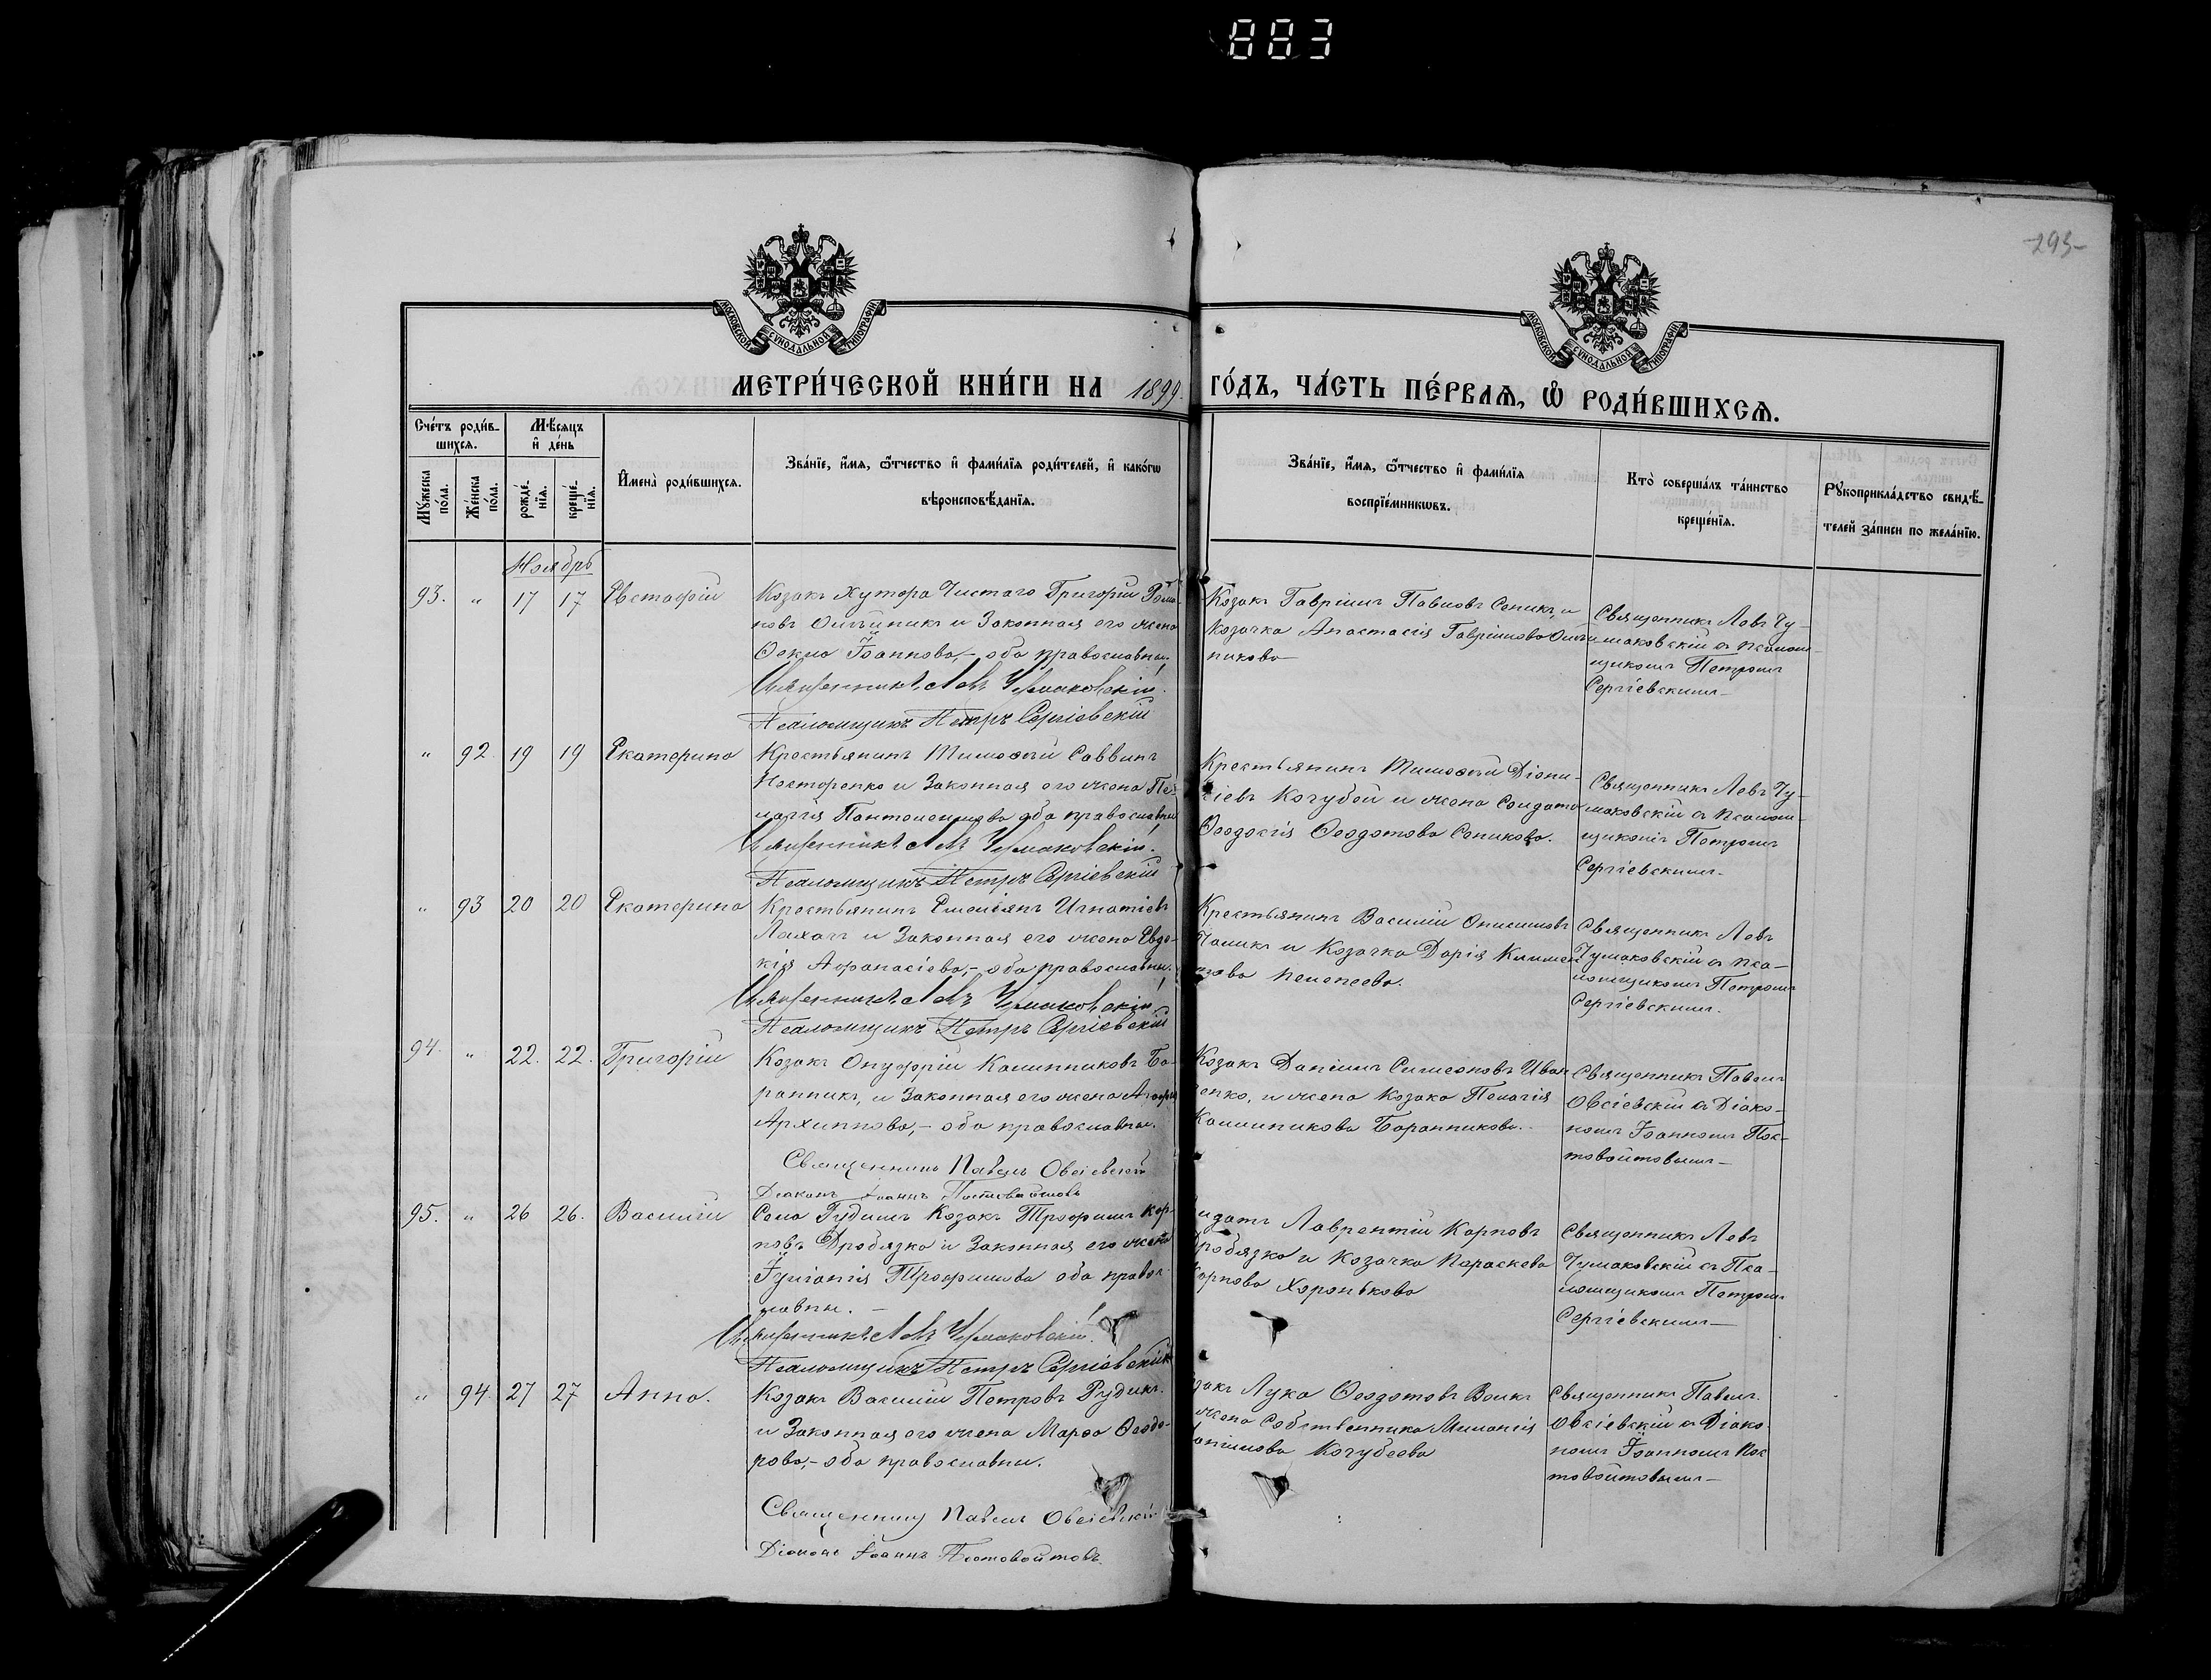 883
293
МОСКОВСКОЙ СУНОДАЛЬНОЙ ТИПОГРАФІИ
МОСКОВСКОЙ СУНОДАЛЬНОЙ ТИПОГРАФІИ
МЕТРИ́ЧЕСКОЙ КНИ́ГИ НА 1899. ГО́ДЪ, ЧА́СТЬ ПЕ́РВАѦ, Ѡ҆ РОДИ́ВШИХСѦ.
Сче́тъ роди́в-
шихсѧ.
Мꙋ́жеска по́ла.
Же́нска по́ла.
Мѣ́сѧцъ
и҆ де́нь
рожде́-
нїѧ.
креще́-
нїѧ.
И҆мена̀ роди́вшихсѧ.
Зва́нїе, и҆́мѧ, ѻ҆́тчество и҆ фами́лїѧ роди́телей, и҆ како́гѡ
вѣроисповѣ́данїѧ.
Зва́нїе, и҆́мѧ, ѻ҆́тчество и҆ фами́лїѧ
воспрїе́мникѡвъ.
Кто̀ соверша́лъ та́инство
креще́нїѧ.
Рꙋкоприкла́дство свидѣ́-
телей за́писи по жела́нїю.
Ноябрь
93. " 17 17 Евстафій
Козакъ Хутора Чистаго Григорій Рома-
новъ и Законная его жена
Ѳекла Іоаннова,- оба православны.
Священникъ Левъ Чумаковскій.
Псаломщикъ Петръ Сергіевскій
Козакъ Гавріилъ Павловъ Сопикъ, и
Козачка Анастасія Гавріилова
никова
Священникъ Левъ Чу-
маковскій съ псалом-
щикомъ Петромъ
Сергіевскимъ
" 92 19 19 Екатерина
Крестьянинъ Тимоѳей Саввинъ
Несторенко и Законная его жена Пе-
лагія Пантелеимова оба православны
Священникъ Левъ Чумаковскій.
Псаломщикъ Петръ Сергіевскій
Крестьянинъ Тимоѳей Діони-
сіевъ Кочубей и жена Солдата
Ѳеодосія Ѳеодотова Сопикова.
Священникъ Левъ Чу-
маковскій съ псалом-
щикомъ Петромъ
Сергіевскимъ
" 93 20 20 Екатерина
Крестьянинъ Емеліянъ Игнатіевъ
и Законная его жена Евдо-
кія Аѳанасіева,- оба православны.
Священникъ Левъ Чумаковскій
Псаломщикъ Петръ Сергіевскій
Крестьянинъ Василій Онисимовъ
и Козачка Дарія Климен-
това
Священникъ Левъ
Чумаковскій съ пса-
ломщикомъ Петромъ
Сергіевскимъ.
94. " 22. 22. Григорій
Козакъ Онуфрій Калинниковъ Ба-
ранникъ, и Законная его жена Агафія
Архиппова,- оба православны.
Священникъ Павелъ Овсіевскій
Діаконъ Іоаннъ Постовойтовъ
Козакъ Даніилъ Симеоновъ Иван
енко, и жена Козака Пелагія
Калинникова Баранникова.
Священникъ Павелъ
Овсіевскій съ Діако-
номъ Іоанномъ Пос-
товойтовымъ
95. " 26 26. Василій
Села Гудимъ Козакъ Трофимъ Кар-
повъ Дробязко и Законная его жена
Іуліанія Трофимова оба право-
славны.
Священникъ Левъ Чумаковскій.
Псаломщикъ Петръ Сергіевскій
лдатъ Лаврентій Карповъ
робязко и Козачка Параскева
Карпова Харонькова
Священникъ Левъ
Чумаковскій съ Пса-
ломщикомъ Петромъ
Сергіевскимъ
" 94. 27 27 Анна.
Козакъ Василій Петровъ Рудикъ.
и Законная его жена Марѳа Ѳеодо-
рова,- оба православны.
Священникъ Павелъ Овсіевскій
Діаконъ Іоаннъ Постовойтовъ.
закъ Лука Ѳеодотовъ Волкъ
жена Собственника Миланія
Кочубеева
Священникъ Павелъ
Овсіевскій съ Діако
номъ Іоанномъ Пос
товойтовымъ